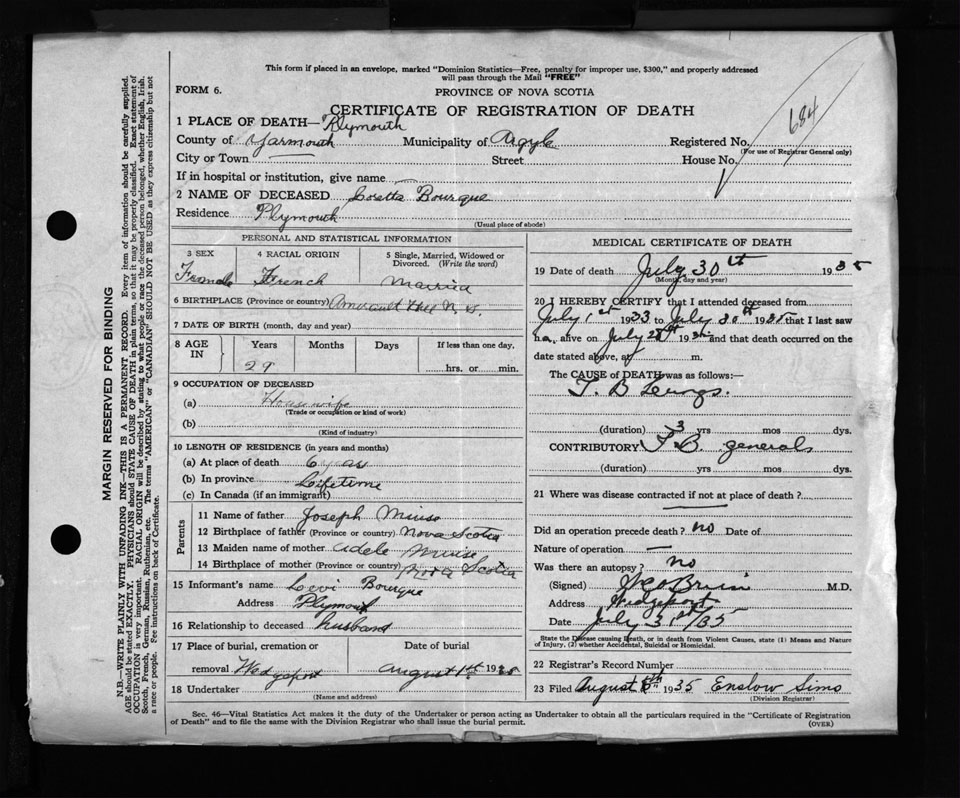 This form if placed in an envelope, marked "Dominion Statistics—Free, penalty for improper use, $300," and properly addressed
will pass through the Mail "FREE"
FORM 6.
PROVINCE OF NOVA SCOTIA
CERTIFICATE OF REGISTRATION OF DEATH
684
1 PLACE OF DEATH— Plymouth
County of Yarmouth Municipality of Argyle Registered No.
(For use of Registrar General only)
City or Town Street House No.
If in hospital or institution, give name
2 NAME OF DECEASED Loretta Bourque
Residence Plymouth
(Usual place of abode)
PERSONAL AND STATISTICAL INFORMATION
3 SEX 4 RACIAL ORIGIN 5 Single, Married, Widowed or
Divorced. (Write the word)
Female French Married
6 BIRTHPLACE (Province or country) Amirault Hill N.S.
7 DATE OF BIRTH (month, day and year)
8 AGE IN Years Months Days If less than one day,
29 hrs. or min.
9 OCCUPATION OF DECEASED
(a) Housewife
(Trade or occupation or kind of work)
(b)
(Kind of industry)
10 LENGTH OF RESIDENCE (in years and months)
(a) At place of death 6 years
(b) In province Lifetime
(c) In Canada (if an immigrant)
Parents
11 Name of father Joseph Miuse
12 Birthplace of father (Province or country) Nova Scotia
13 Maiden name of mother Adele Muise
14 Birthplace of mother (Province or country) Nova Scotia
15 Informant's name Levi Bourque
Address Plymouth
16 Relationship to deceased husband
17 Place of burial, cremation or Date of burial
removal Wedgeport August 1st 1935
18 Undertaker
(Name and address)
MEDICAL CERTIFICATE OF DEATH
19 Date of death July 30th 1935
(Month, day and year)
20 I HEREBY CERTIFY that I attended deceased from
July 1st 1933 to July 30th 1935 that I last saw
h alive on July 28th 193 and that death occurred on the
date stated above, at m.
The CAUSE of DEATH was as follows:
T. B. Lungs.
(duration) 3 yrs mos dys.
CONTRIBUTORY T.B. general
(duration) yrs mos dys.
21 Where was disease contracted if not at place of death?
Did an operation precede death? no Date of
Nature of operation —
Was there an autopsy? no
(Signed) M.D.
Address Wedgeport
Date July 31st/35
State the Disease causing Death, or in death from Violent Causes, state (1) Means and Nature
of Injury, (2) whether Accidental, Suicidal or Homicidal.
22 Registrar's Record Number
23 Filed August 1935 Enslow Sims
(Division Registrar)
Sec. 46—Vital Statistics Act makes it the duty of the Undertaker or person acting as Undertaker to obtain all the particulars required in the "Certificate of Registration
of Death" and to file the same with the Division Registrar who shall issue the burial permit.
(OVER)
MARGIN RESERVED FOR BINDING
N.B.—WRITE PLAINLY WITH UNFADING INK—THIS IS A PERMANENT RECORD. Every item of information should be carefully supplied.
AGE should be stated EXACTLY. PHYSICIANS should STATE CAUSE OF DEATH in plain terms, so that it may be properly classified. Exact statement of
OCCUPATION is very important. RACIAL ORIGIN will be described by stating to what people or race the deceased person belonged, whether English, Irish,
Scotch, French, German, Russian, Ruthenian, etc. The terms "AMERICAN" or "CANADIAN" SHOULD NOT BE USED as they express citizenship but not
a race or people. See instructions on back of Certificate.